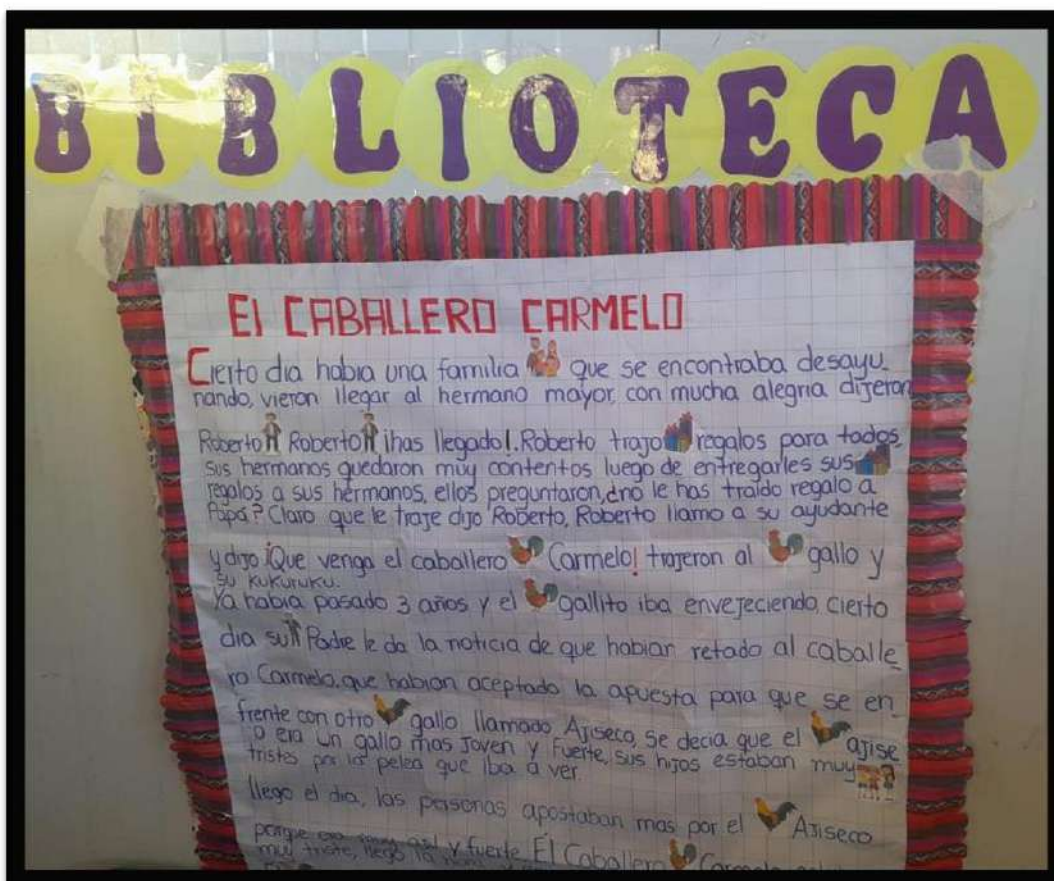 BIBLIOTECA
El CABALLERO CARMELO
Cierto dia habia una familia que se encontraba desayu_
nando, vieron llegar al hermano mayor, con mucha alegria dijeron
Roberto Roberto ¡has llegado!. Roberto trajo regalos para todos,
sus hermanos quedaron muy contentos luego de entregarles sus
regalos a sus hermanos, ellos preguntaron ¿no le has traido regalo a
Papá? Claro que le traje dijo Roberto, Roberto llamo a su ayudante
y dijo ¡Que venga el caballero Carmelo! trajeron al gallo y
su kukuruku.
Ya habia pasado 3 años y el gallito iba envejeciendo, cierto
dia su Padre le da la noticia de que habian retado al caballe_
ro Carmelo, que habian aceptado la apuesta para que se en_
frente con otro gallo llamado Ajiseco, Se decia que el ajise
o era un gallo mas Joven y Fuerte, sus hijos estaban muy
tristes por la pelea que iba a ver.
llego el dia, las personas apostaban mas por el Ajiseco
porque era y fuerte El Caballero Carmelo
muy triste, llego la